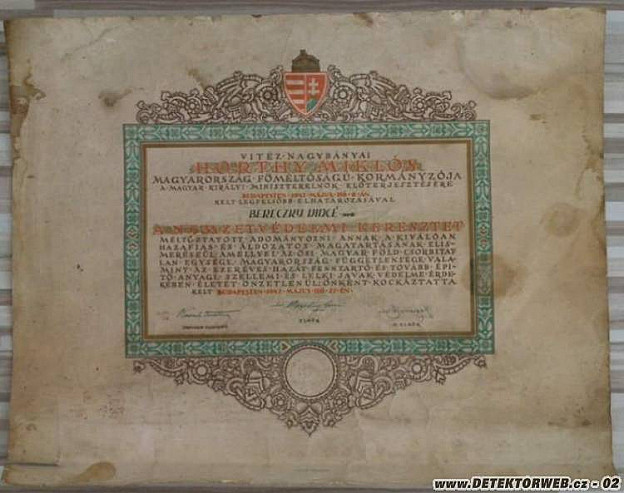 VITÉZ NAGYBÁNYAI
HORTHY MIKLÓS
MAGYARORSZÁG FŐMÉLTÓSÁGÚ KORMÁNYZÓJA
A MAGYAR KIRÁLYI MINISZTERELNÖK ELŐTERJESZTÉSÉRE
BUDAPESTEN 1942 MÁJUS HÓ
KELT LEGFELSŐBB ELHATÁROZÁSÁVAL
BERECZKY
A NEMZETVÉDELMI KERESZTET
MÉLTÓZTATOTT ADOMÁNYOZNI ANNAK A KIVÁLÓAN
HAZAFIAS ÉS ÁLDOZATOS MAGATARTÁSÁNAK ELIS-
MERÉSÉÜL AMELLYEL AZ ŐSI MAGYAR FÖLD CSORBÍTAT-
LAN EGYSÉGE, MAGYARORSZÁG FÜGGETLENSÉGE VALA-
MINT AZ EZERÉVES HAZÁT FENNTARTÓ ÉS TOVÁBB ÉPÍ-
TŐ ANYAGI, SZELLEMI ÉS LELKI JAVAK VÉDELME ÉRDE-
KÉBEN ÉLETÉT ÖNZETLENÜL ÖNKÉNT KOCKÁZTATTA
KELT BUDAPESTEN 1942 MÁJUS HÓ
ELNÖK
www.DETEKTORWEB.cz - 02